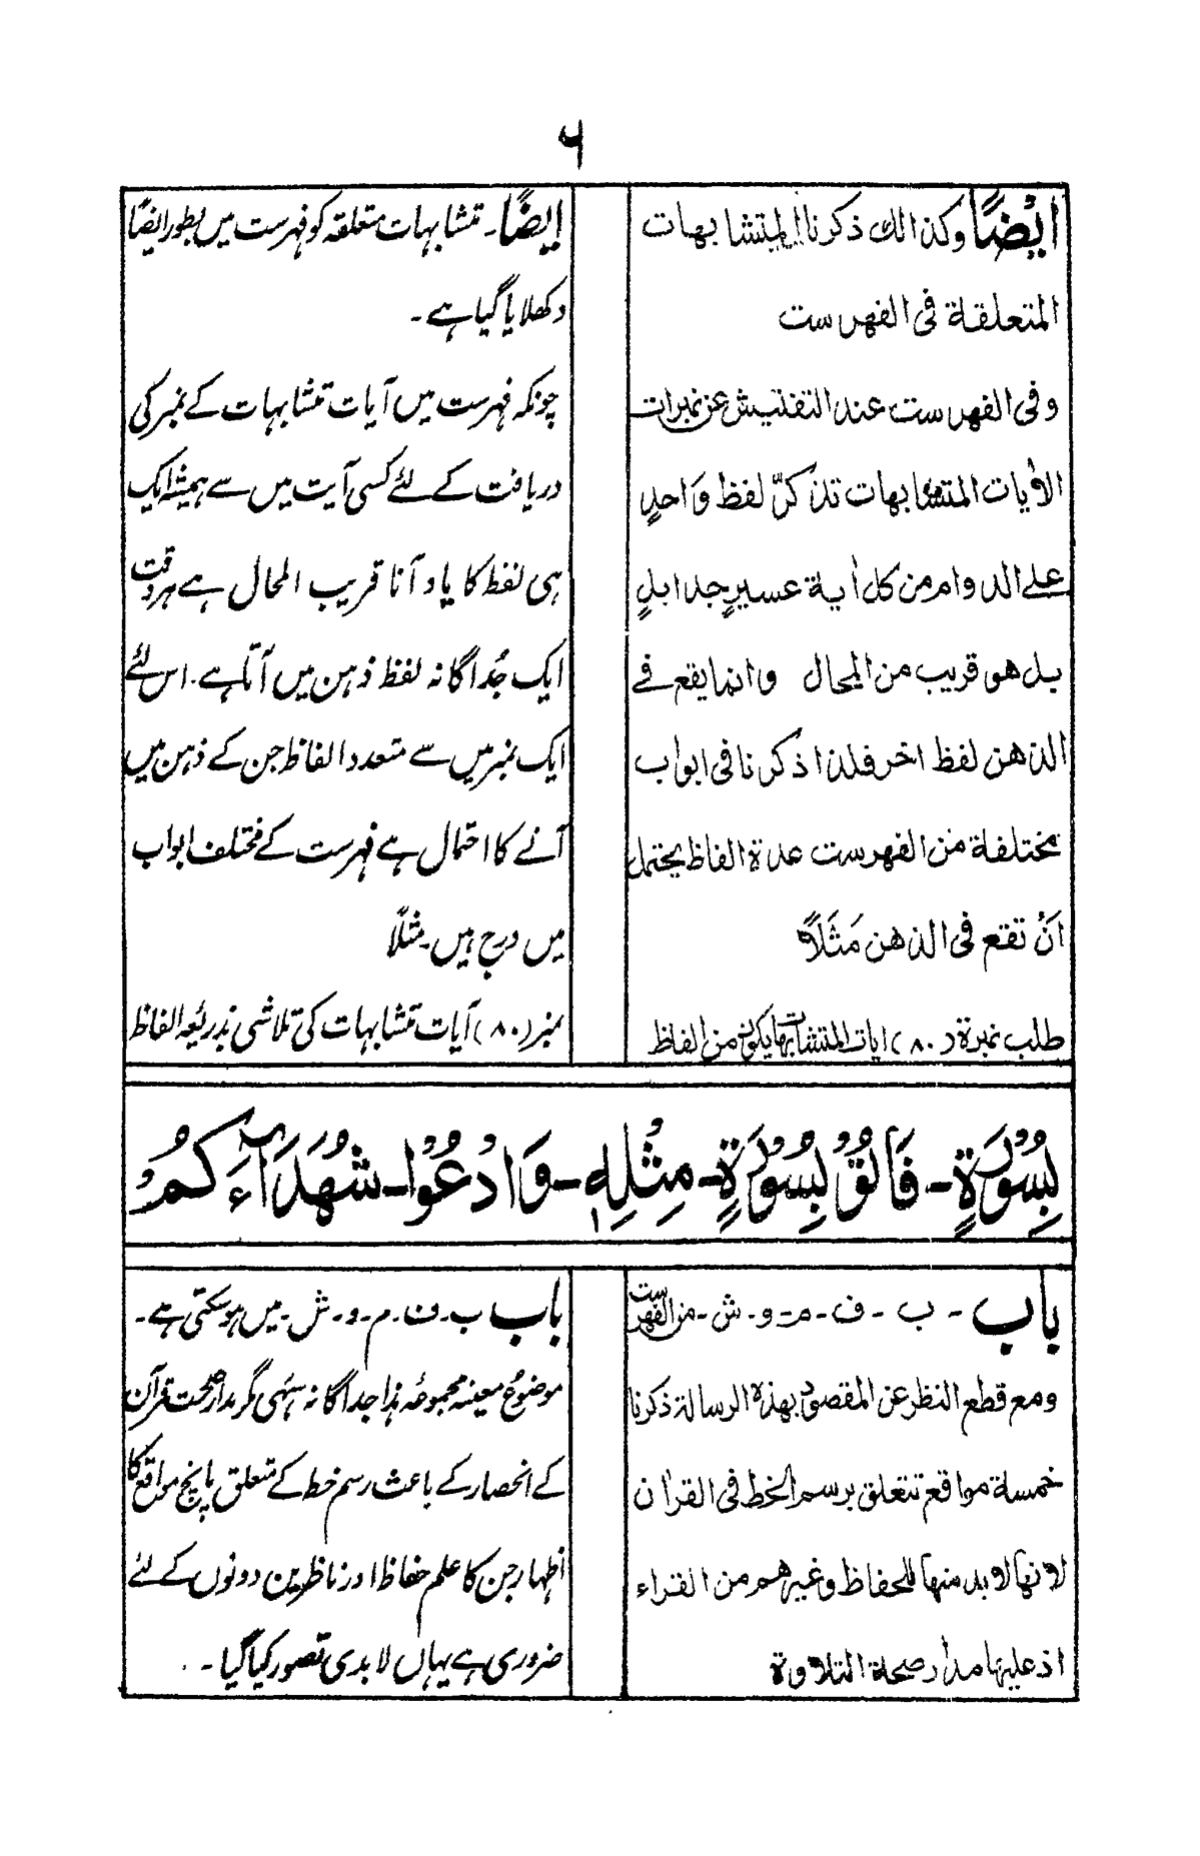 ۶
ایْضًا وکذالک ذکرنا المتشابهات
المتعلقة فی الفهرست
وفی الفهرست عند التفتیش عن نمبرات
الاٰیات المتشابهات تذکرّ لفظ وَاحدٍ
علے الدوام من کل اٰیة عسیرٍ جدا ابلٍ
بل هو قریب من المحال وانما یقع فے
الذهن لفظ اخر فلذا ذکرنا فی ابواب
مختلفة من الفهرست عدة الفاظ یحتمل
اَنْ تقع فی الذهن مَثَلاً
طلب نمبرة (۸۰) ایات المتشابهات یکون من الفاظ
ایضًا۔ تمشابہات متعلقہ کو فہرست میں بطور ایضًا
دکھلایا گیا ہے۔
چونکہ فہرست میں آیات تمشابہات کے نمبر کی
دریافت کے لئے کسی آیت میں سے ہمیشہ ایک
ہی لفظ کا یاد آنا قریب المحال ہے ہر وقت
ایک جُداگانہ لفظ ذہن میں آتا ہے۔ اس لئے
ایک نمبر میں سے متعدد الفاظ جن کے ذہن میں
آنے کا احتمال ہے فہرست کے مختلف ابواب
میں درج ہیں۔ مثلًا
نمبر (۸۰) آیات تمشابہات کی تلاشی بذریعہ الفاظ
بِسُوْرَةٍ - فَاْتُوْ بِسُوْرَةٍ - مِثْلِهٖ - وَادْعُوْا - شُهَدَآءَكُمْ
باب - ب - ف - م - و - ش - من الفهرست
ومع قطع النظر عن المقصود بهذه الرسالة ذکرنا
خمسة مواقع تتعلق برسم الخط فی القراٰن
لانها لابد منها للحفاظ وغیرهم من القراء
اذ علیها مدار صحة التلاوة
باب ب۔ ف۔ م۔ و۔ ش۔ میں ہو سکتی ہے۔
موضوع معینہ مجموعہ ہذا جداگانہ سہی مگر مدار صحت قرآن
کے انحصار کے باعث رسم خط کے متعلق پانچ مواقع کا
اظہار جن کا علم حفاظ اور ناظرین دونوں کے لئے
ضروری ہے یہاں لابدی تصور کیا گیا۔